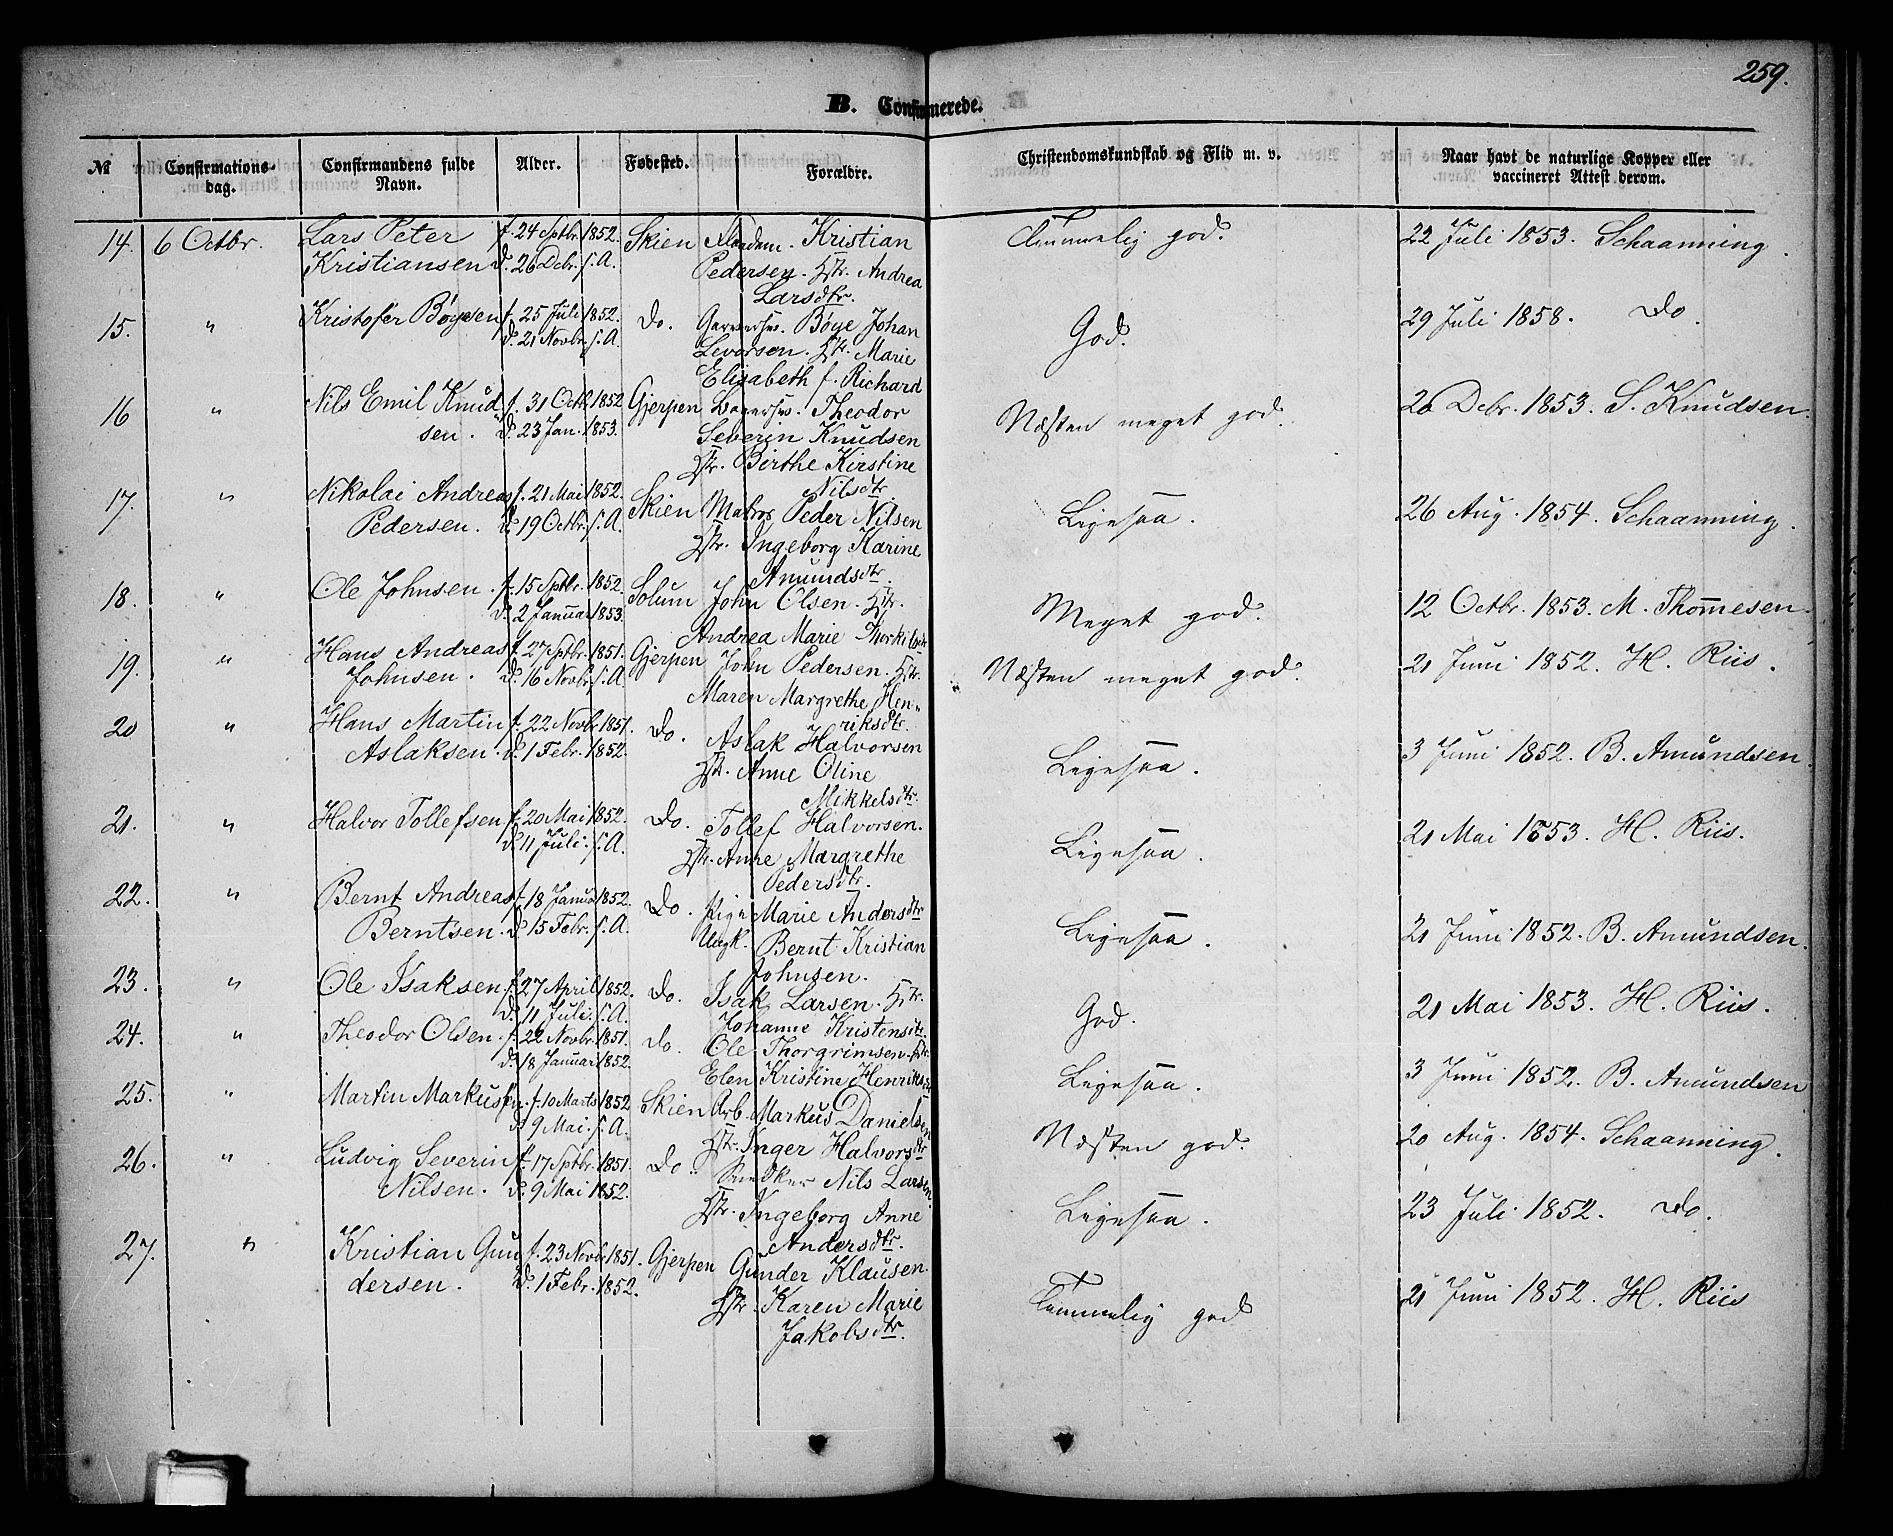 259.
B. Confirmerede.
№ Confirmations-dag. Confirmandens fulde Navn. Alder. Fødested. Forældre. Christendomskundskab og Flid m. v. Naar havt de naturlige Kopper eller vaccineret Attest derom.
14. 6 Octbr. Lars Peter f. 24 Sptbr. 1852. Skien Kristian Temmelig god. 22 Juli 1853. Schaanning.
Kristiansen d. 26 Debr. s. A. Pedersen. Hstr. Andrea
Larsdtr.
15. " Kristofer Bøyesen f. 25 Juli 1852. Do. Garversv. Bøye Johan God. 29 Juli 1858. Do.
d. 21 Novbr. s. A. Levorsen. Hstr. Marie
Elisabeth f. Richard
16 " Nils Emil Knud f. 31 Octb. 1852 Gjerpen Bagersv. Theodor Næsten meget god. 26 Debr. 1853. S. Knudsen.
sen. d. 23 Jan. 1853. Severin Knudsen
Hstr. Birthe Kirstine
Nilsdtr.
17. " Nikolai Andreas f. 21 Mai 1852. Skien Matros Peder Nilsen Ligesaa. 26 Aug. 1854. Schaanning.
Pedersen. d. 19 Octbr. s. A. Hstr. Ingeborg Karine
Amundsdtr.
18. " Ole Johnsen. f. 15 Sptbr. 1852. Solum John Olsen. Hstr. Meget god. 12 Octbr. 1853. M. Thomesen.
d. 2 Januar 1853. Andrea Marie
19. " Hans Andreas f. 27 Sptbr. 1851. Gjerpen John Pedersen. Hstr. Næsten meget god. 21 Juni 1852. H. Riis.
Johnsen. d. 16 Novbr. s. A. Maren Margrethe Hen-
riksdtr.
20 " Hans Martin f. 22 Novbr 1851. Do. Aslak Halvorsen Ligesaa. 3 Juni 1852. B. Amundsen.
Aslaksen. d. 1 Febr. 1852. Hstr. Anne Oline
Mikkelsdtr.
21. " Halvor Tollefsen f. 20 Mai 1852. Do. Tollef Halvorsen. Ligesaa. 21 Mai 1853. H. Riis.
d. 11 Juli. s. A. Hstr. Anne Margrethe
Pedersdtr.
22. " Bernt Andreas f. 18 Januar 1852. Do. Pige Marie Andersdtr Ligesaa. 21 Juni 1852. B. Amundsen.
Berntsen. d. 15 Febr. s. A. Ungk. Bernt Kristian
Johnsen.
23. " Ole Isaksen. f. 27 April 1852. Do. Isak Larsen. Hstr. God. 21 Mai 1853. H. Riis.
d. 11 Juli. s. A. Johanne Kristensdtr.
24. " Theodor Olsen. f. 22 Novbr. 1851. do. Ole Thorgrimsen. Hstr. Ligesaa. 3 Juni 1852. B. Amundsen
d. 18 Januar 1852. Elen Kristine Henriksdtr
25. " Martin Markussen. f. 10 Marts 1852 Skien Arb. Markus Danielsen Næsten god. 20 Aug. 1854. Schaanning.
d. 9 Mai. s. A. Hstr. Inger Halvorsdtr
26. " Ludvig Severin f. 17 Sptbr. 1851. Do. Snedker Nils Larsen Ligesaa. 23 Juli 1852. Do.
Nilsen. d. 9 Mai 1852. Hstr. Ingeborg Anne
Andersdtr.
27. " Kristian Gun f. 23 Novbr 1851. Gjerpen Gunder Klausen. Temmelig god 21 Juni 1852. H. Riis
dersen. d. 1 Febr. 1852. Hstr. Karen Marie
Jakobsdtr.